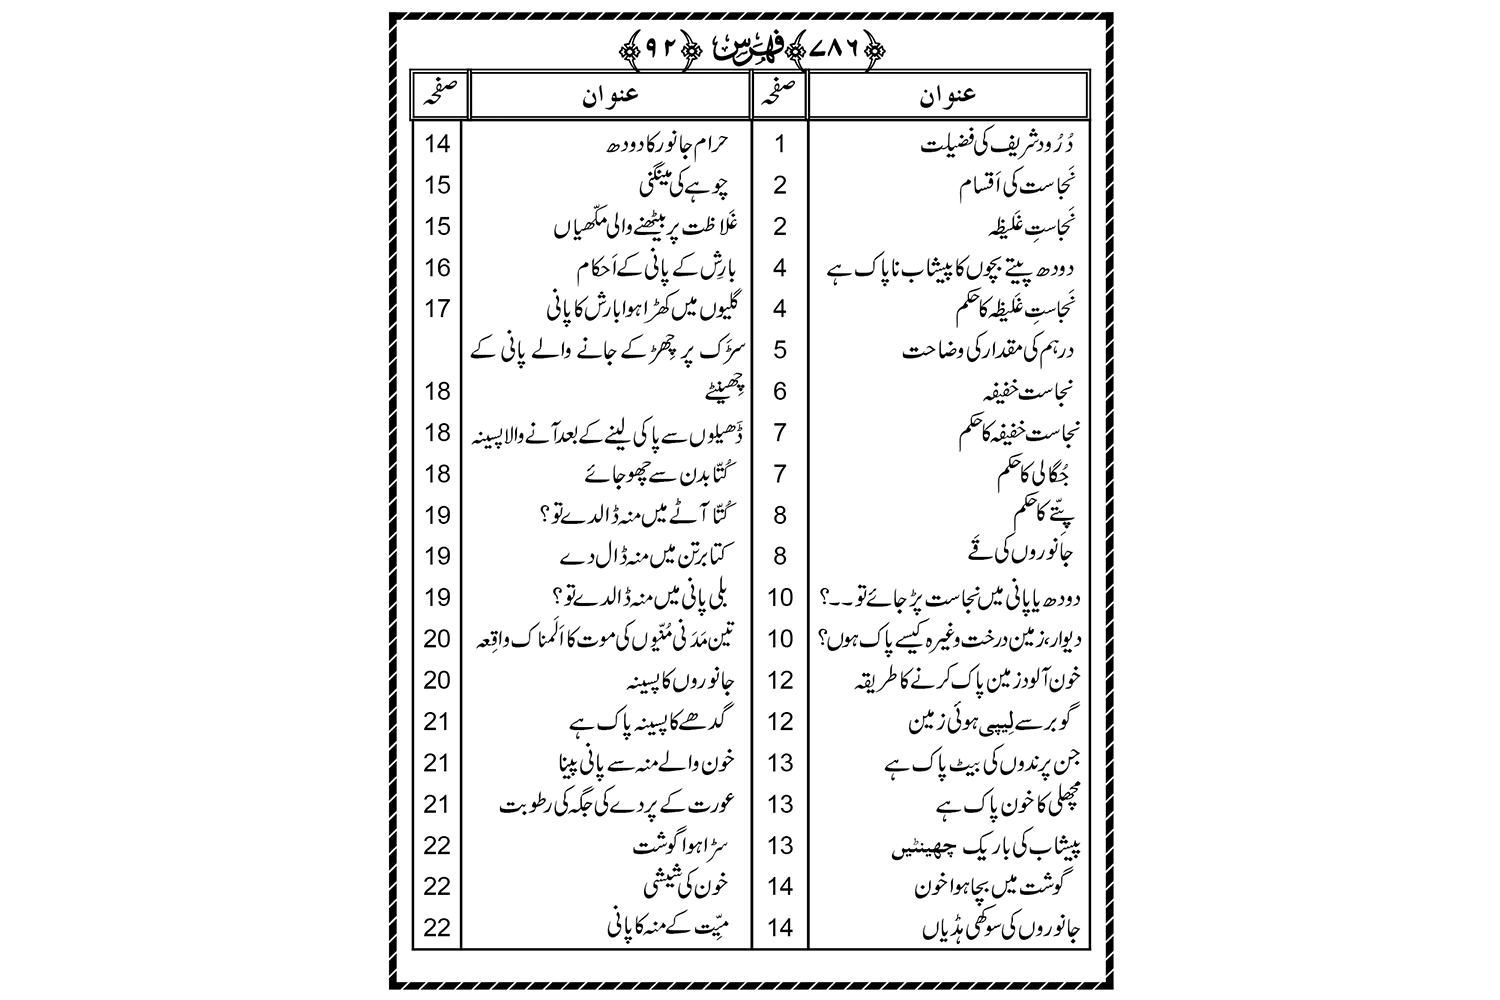 ﴿۷۸۶﴾ فہرس ﴿۹۲﴾
عنوان صفحہ عنوان صفحہ
دُرُود شریف کی فضیلت 1
نَجاست کی اَقسام 2
نَجاستِ غَلیظہ 2
دودھ پیتے بچوں کا پیشاب ناپاک ہے 4
نَجاستِ غَلیظہ کا حکم 4
درہم کی مقدار کی وضاحت 5
نجاست خفیفہ 6
نجاست خفیفہ کا حکم 7
جُگالی کا حکم 7
پِتّے کا حکم 8
جانوروں کی قَے 8
دودھ یا پانی میں نجاست پڑ جائے تو۔۔؟ 10
دیوار، زمین درخت وغیرہ کیسے پاک ہوں؟ 10
خون آلود زمین پاک کرنے کا طریقہ 12
گوبر سے لِیپی ہوئی زمین 12
جن پرندوں کی بیٹ پاک ہے 13
مچھلی کا خون پاک ہے 13
پیشاب کی باریک چھینٹیں 13
گوشت میں بچا ہوا خون 14
جانوروں کی سوکھی ہڈیاں 14
حرام جانور کا دودھ 14
چوہے کی مینگنی 15
غَلاظت پر بیٹھنے والی مکّھیاں 15
بارِش کے پانی کے اَحکام 16
گلیوں میں کھڑا ہوا بارش کا پانی 17
سڑَک پر چِھڑکے جانے والے پانی کے
چِھینٹے 18
ڈَھیلوں سے پاکی لینے کے بعد آنے والا پسینہ 18
کُتّا بدن سے چھو جائے 18
کُتّا آٹے میں منہ ڈالدے تو؟ 19
کتا برتن میں منہ ڈال دے 19
بلی پانی میں منہ ڈالدے تو؟ 19
تین مَدَنی مُنّیوں کی موت کا اَلَمناک واقِعہ 20
جانوروں کا پسینہ 20
گدھے کا پسینہ پاک ہے 21
خون والے منہ سے پانی پینا 21
عورت کے پردے کی جگہ کی رطوبت 21
سڑا ہوا گوشت 22
خون کی شیشی 22
میِّت کے منہ کا پانی 22